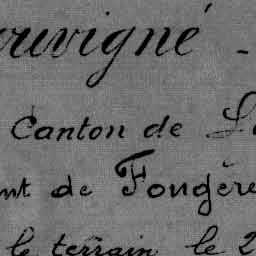 ouvigné -
Canton de L
nt de Fougère
le terrain le 2